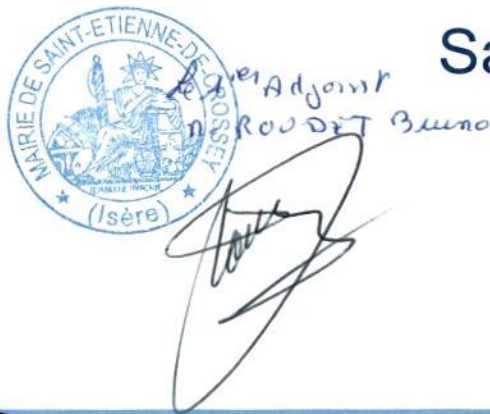 MAIRIE DE SAINT-ETIENNE-DE-CROSSEY
(Isère)
Sa
Le 1er Adjoint
Mr ROUDET Bruno